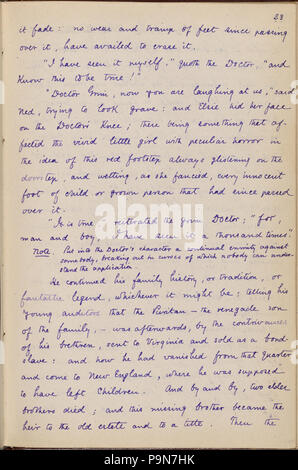 23
it fade: no wear and tramp of feet since passing
over it, have availed to erase it.
"I have seen it myself," quoth the Doctor, "and
know this to be true!"
"Doctor Grim, now you are laughing at us," said
Ned, trying to look grave: and Elsie hid her face
on the Doctor's knee; there being something that af-
fected the vivid little girl with peculiar horror in
the idea of this red footstep always glistening on the
doorstep, and wetting, as she fancied, every innocent
foot of child or grown person that had since passed
over it.
"It is true," reiterated the grim Doctor; "for,
man and boy, I have seen it a thousand times."
Note. Put into the Doctor's character a continual enmity against
somebody, breaking out in curses of which nobody can under-
stand the application.
He continued his family history, or tradition, or
fantastic legend, whichever it might be: telling his
young auditors that the Puritan — the renegade son
of the family, — was afterwards, by the contrivances
of his brethren, sent to Virginia and sold as a bond-
slave: and how he had vanished from that quarter
and come to New England, where he was supposed
to have left children. And by and by, two elder
brothers died; and this missing brother became the
heir to the old estate and to a title. Then the
alamy
Image ID: P9N7HK
www.alamy.com